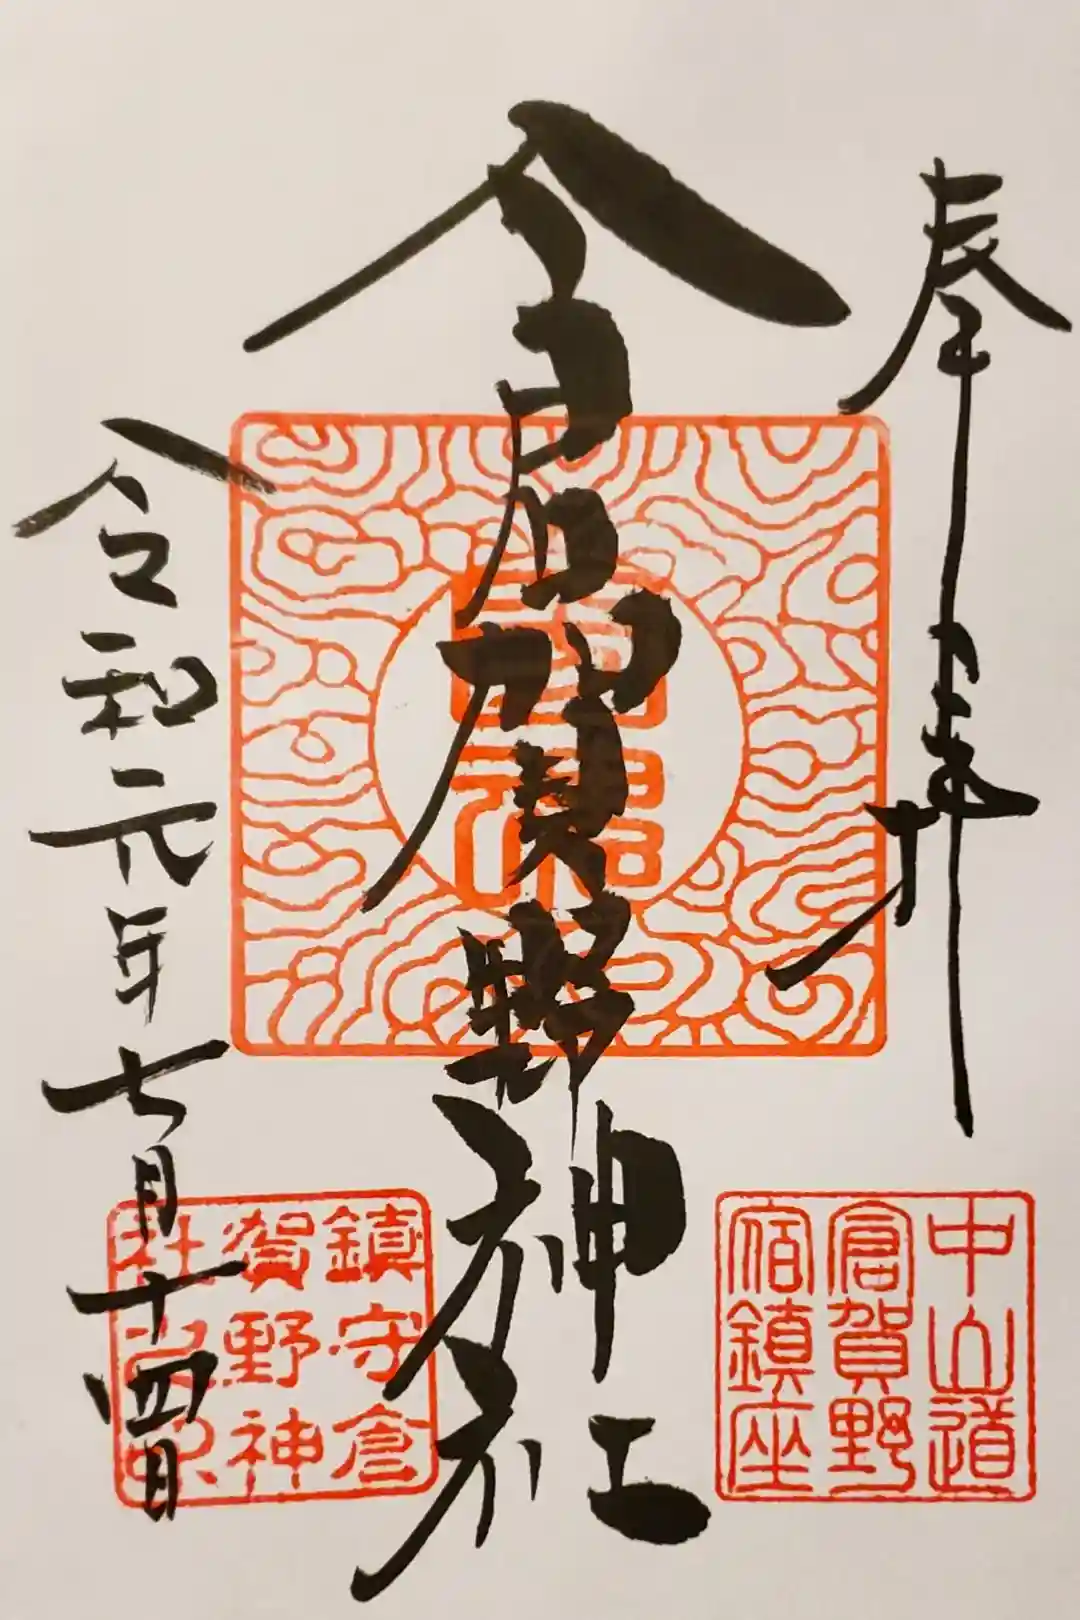 奉拝
倉賀野神社
令和元年七月十四日
中山道
倉賀野
宿鎮座
鎮守倉
賀野神
社之印